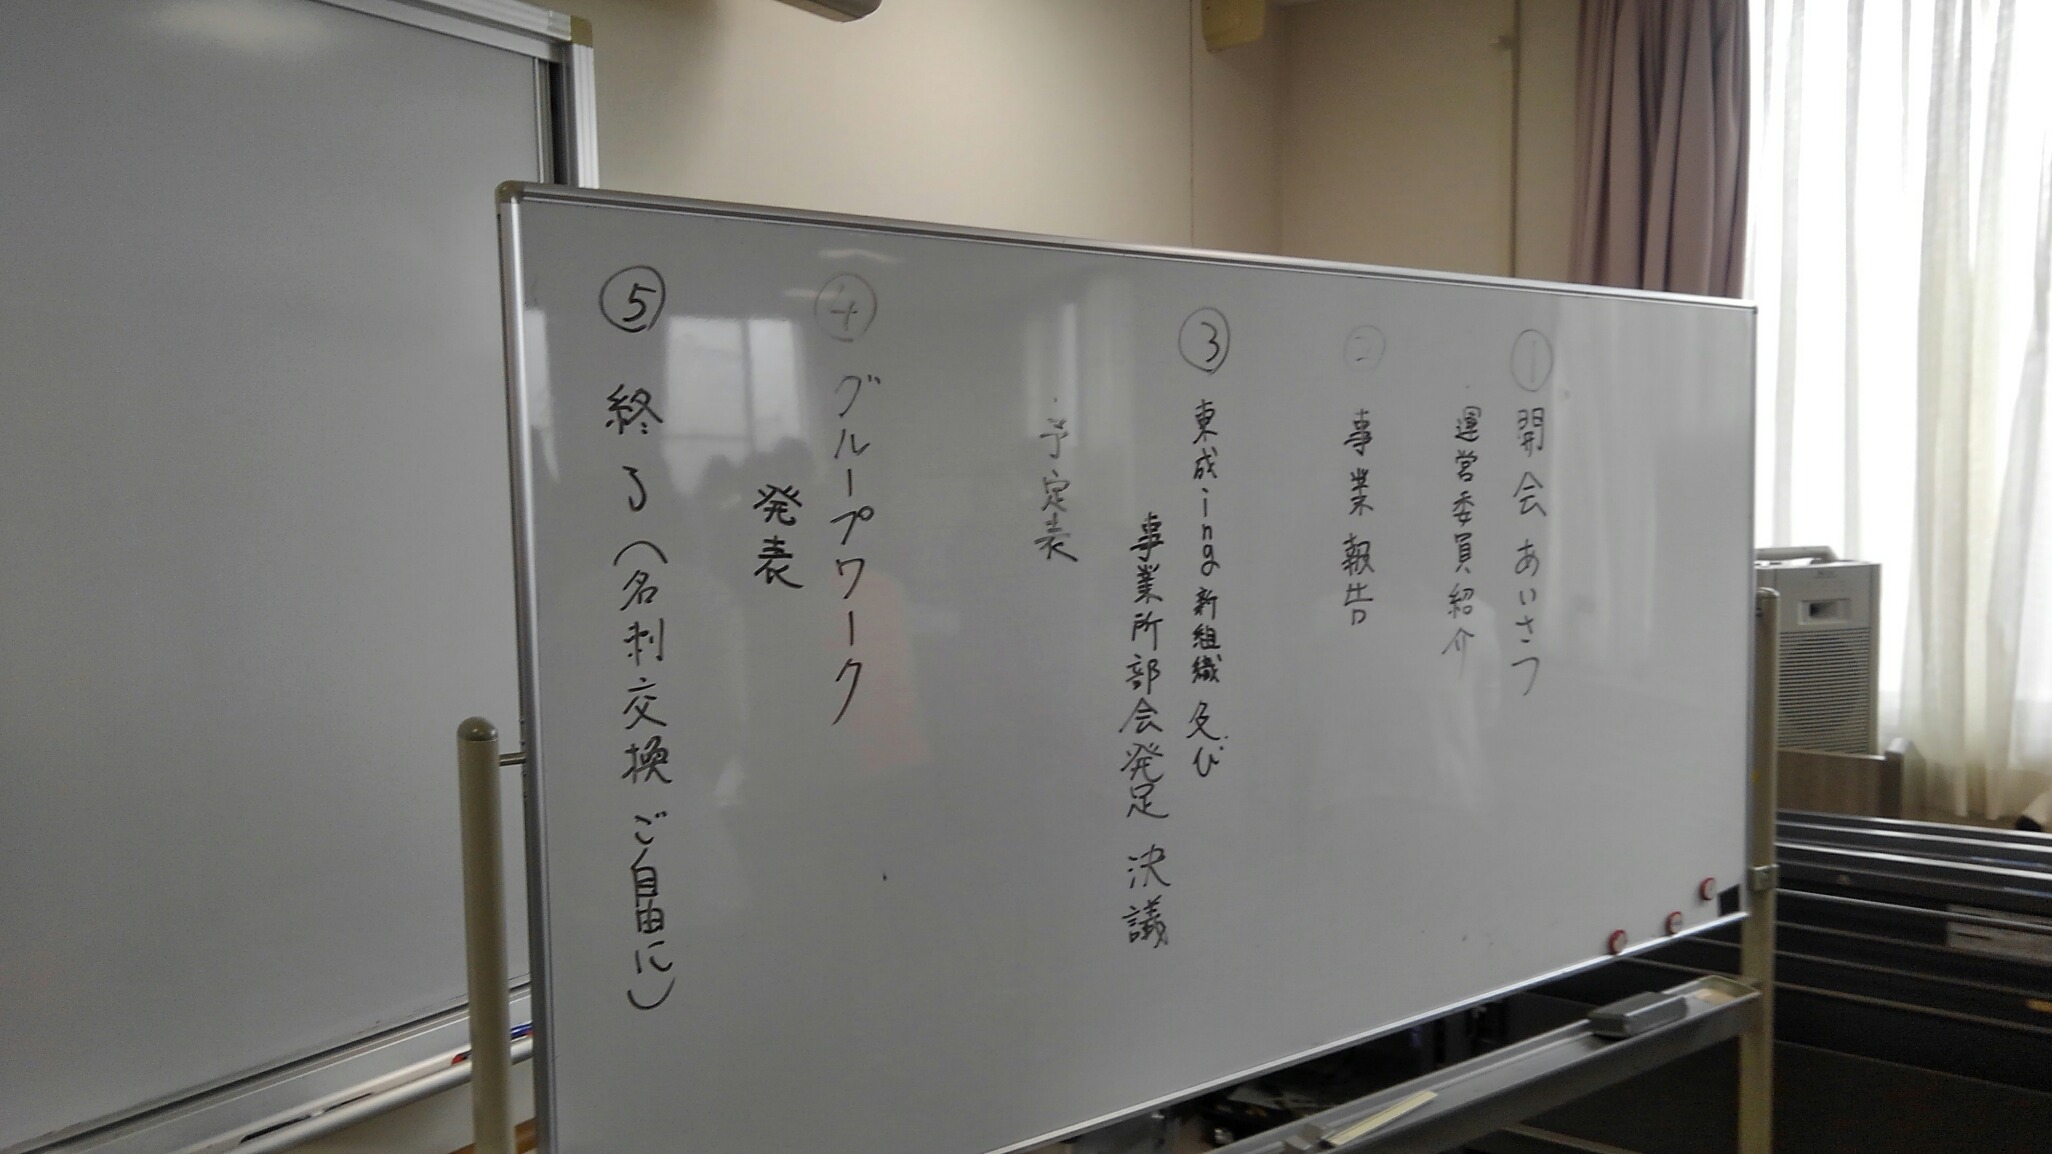 ① 開会あいさつ
運営委員紹介
② 事業報告
③ 東成ing新組織及び
事業所部会発足 決議
予定表
④ グループワーク
発表
⑤ 終了(名刺交換ご自由に)